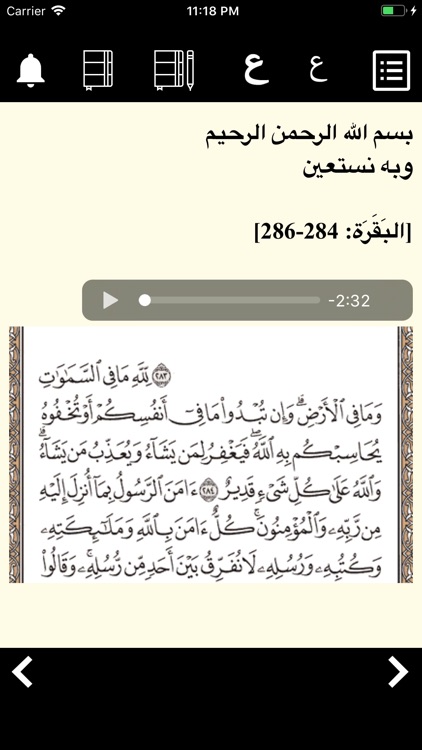 Carrier 11:18 PM
ع ع
بسم الله الرحمن الرحيم
وبه نستعين
[البَقَرَة: 284-286]
-2:32
٢٨٣ لِّلَّهِ مَا فِي السَّمَٰوَٰتِ
وَمَا فِي الْأَرْضِ ۗ وَإِن تُبْدُوا مَا فِي أَنفُسِكُمْ أَوْ تُخْفُوهُ
يُحَاسِبْكُم بِهِ اللَّهُ ۖ فَيَغْفِرُ لِمَن يَشَاءُ وَيُعَذِّبُ مَن يَشَاءُ ۗ
وَاللَّهُ عَلَىٰ كُلِّ شَيْءٍ قَدِيرٌ ٢٨٤ ءَامَنَ الرَّسُولُ بِمَا أُنزِلَ إِلَيْهِ
مِن رَّبِّهِ وَالْمُؤْمِنُونَ ۚ كُلٌّ ءَامَنَ بِاللَّهِ وَمَلَٰئِكَتِهِ
وَكُتُبِهِ وَرُسُلِهِ لَا نُفَرِّقُ بَيْنَ أَحَدٍ مِّن رُّسُلِهِ ۚ وَقَالُوا